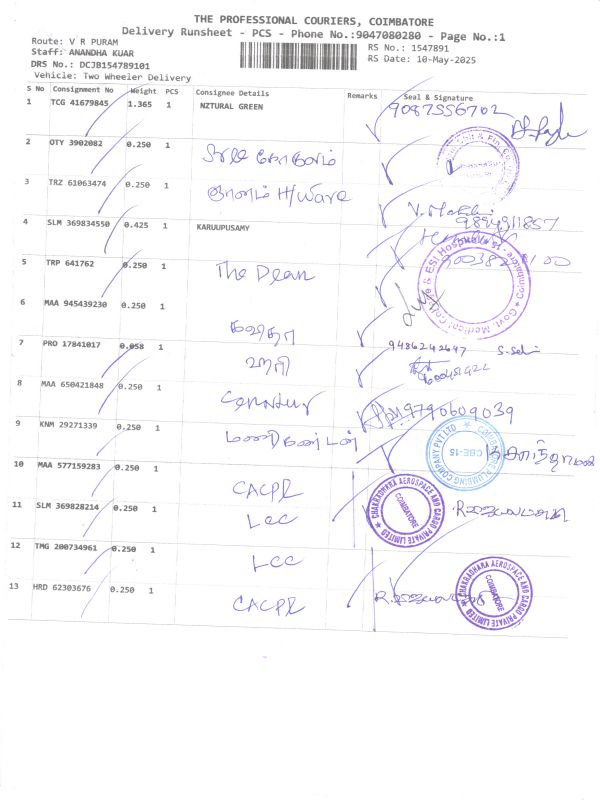 THE PROFESSIONAL COURIERS, COIMBATORE
Delivery Runsheet - PCS - Phone No.:9047080280 - Page No.:1
Route: V R PURAM
RS No.: 1547891
Staff: ANANDHA KUAR
RS Date: 10-May-2025
DRS No.: DCJB154789101
Vehicle: Two Wheeler Delivery
S No Consignment No Weight PCS Consignee Details Remarks Seal & Signature
1 TCG 41679845 1.365 1 NZTURAL GREEN 9087556702
2 OTY 3902082 0.250 1
3 TRZ 61063474 0.250 1 H/Ware
4 SLM 369834550 0.425 1 KARUUPUSAMY 9894911857
5 TRP 641762 0.250 1 The Dean
Govt. Medical College & ESI Hospital Coimbatore - 15
6 MAA 945439230 0.250 1 கவிதா
7 PRO 17841017 0.058 1 9486242697
8 MAA 650421848 0.250 1 9790609039
9 KNM 29271339 0.250 1
COIMBATORE PLUMBING COMPANY PVT LTD CBE-15
10 MAA 577159283 0.250 1 CACPL
CHAKRADHARA AEROSPACE AND CARGO PRIVATE LIMITED COIMBATORE
11 SLM 369828214 0.250 1 LCC
12 TMG 200734961 0.250 1 LCC
13 HRD 62303676 0.250 1 CACPL
CHAKRADHARA AEROSPACE AND CARGO PRIVATE LIMITED COIMBATORE